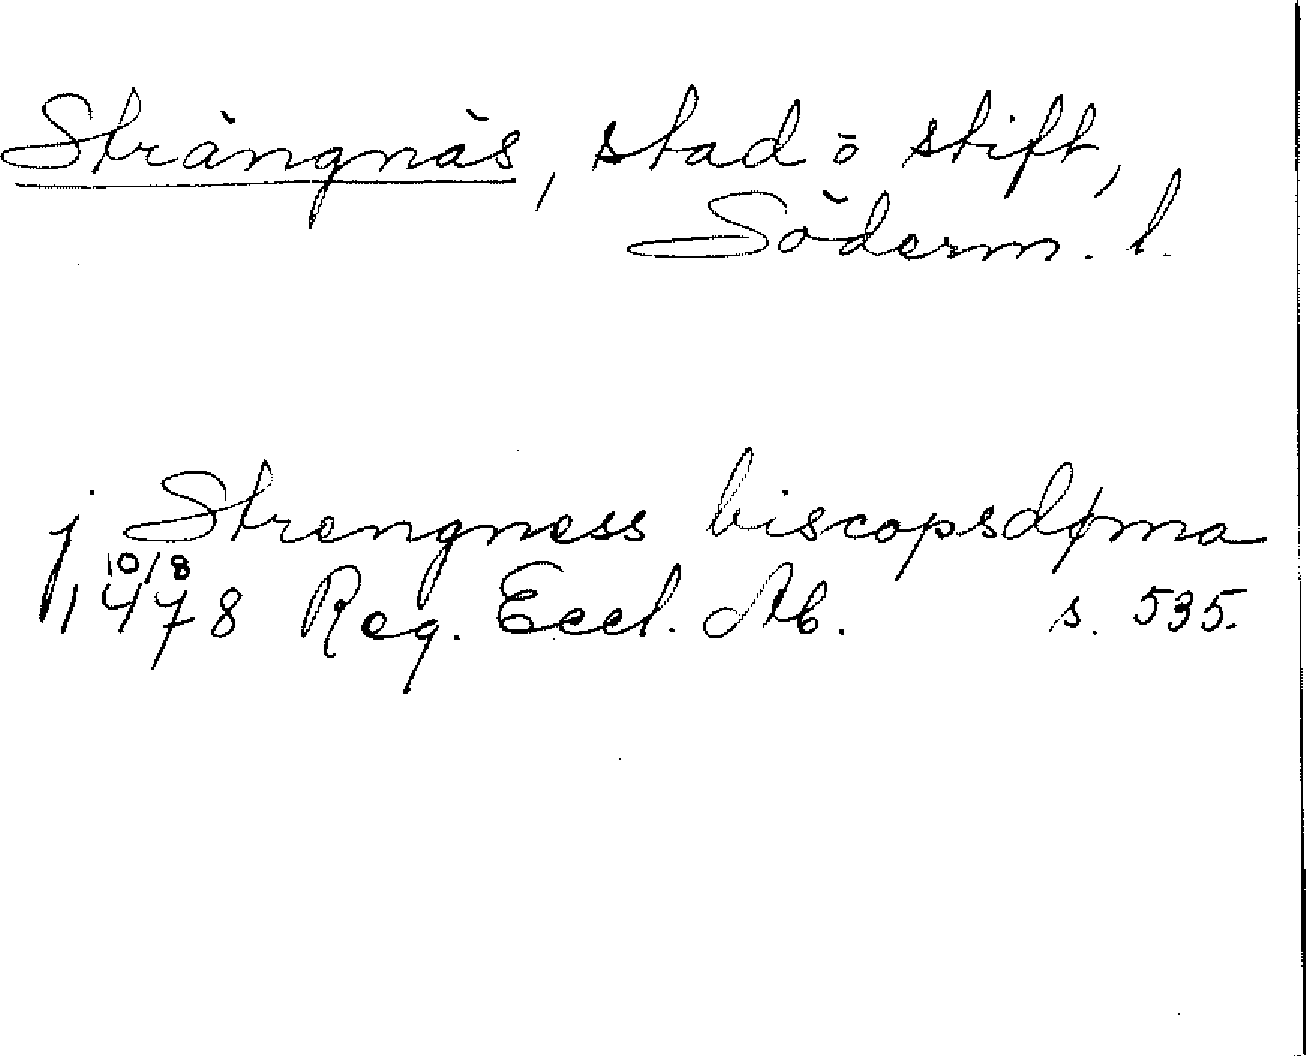 Strängnäs, stad o stift,
Söderm. l.
j Strengness biscopsdøma
10/8
1478 Reg. Eccl. Ab. s. 535.